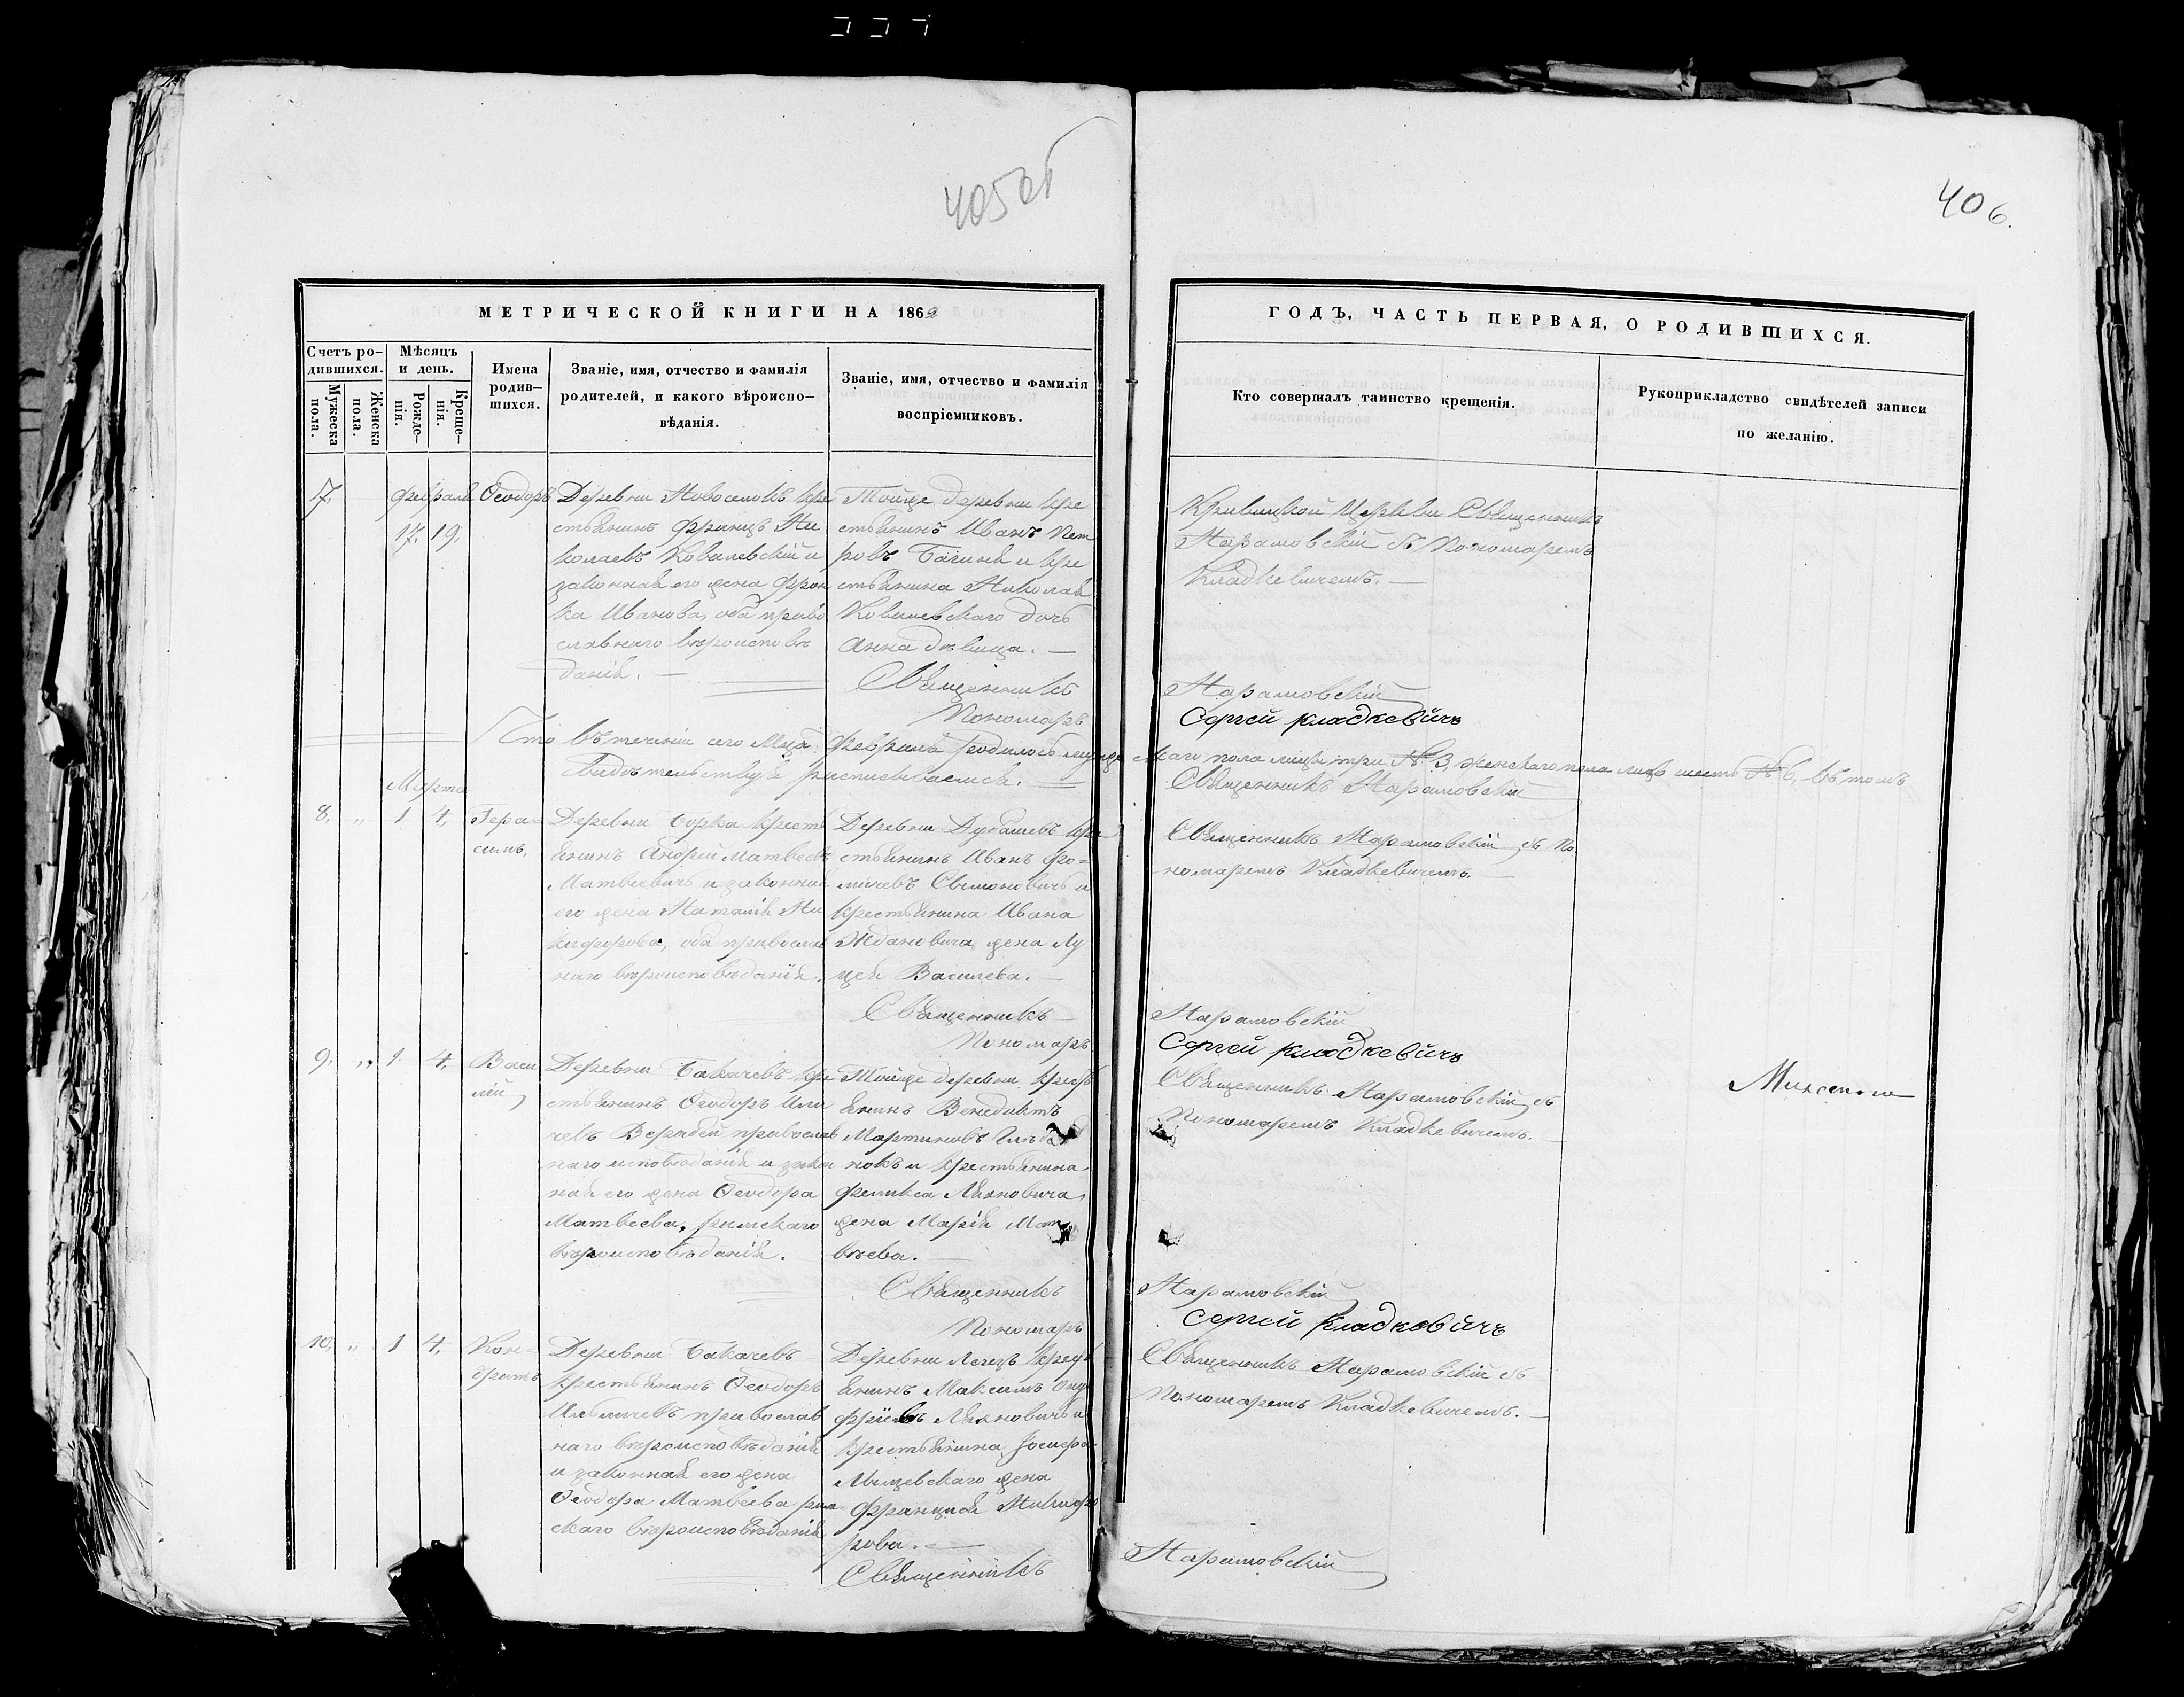 405 об
406.
МЕТРИЧЕСКОЙ КНИГИ НА 1862
ГОДЪ, ЧАСТЬ ПЕРВАЯ, О РОДИВШИХСЯ.
Счетъ ро-
дившихся.
Мужеска
пола.
Женска
пола.
Мѣсяцъ
и день.
Рожде-
нія.
Креще-
нія.
Имена
родив-
шихся.
Званіе, имя, отчество и фамилія
родителей, и какого вѣроиспо-
вѣданія.
Званіе, имя, отчество и фамилія
воспріемниковъ.
Кто совершалъ таинство крещенія.
Рукоприкладство свидѣтелей записи
по желанію.
7.
Февраля
17. 19.
Ѳеодоръ
Деревни Новоселокъ кре
стьянинъ Францъ Ни
колаевъ Ковалевскій и
законная его жена Фран
ка Иванова, оба право
славнаго вѣроисповѣ
данія. —
Тойже деревни кре
стьянинъ Иванъ Пет
ровъ и кре
стьянина Николая
Ковалевскаго дочь
Анна дѣвица. —
Священникъ
Пономарь
Кривицкой Церкви Священникъ
Нарановскій съ Пономаремъ
Кладкевичемъ. —
Нарановскій
Сергѣй Кладкевичъ
Что въ теченіи сего Мца Февраля родилось мужескаго пола лицъ три № 3, женскаго пола лицъ шесть № 6, въ томъ
свидѣтельствуя росписываемся. —
Священникъ Нарановскій
Марта
8. " 1 4.
Гера-
симъ,
Деревни Борка кресть
янинъ Андрей Матвеевъ
Матвеевичъ и законная
его жена Наталія Ни
кифорова, оба православ
наго вѣроисповѣданія.
Деревни кре
стьянинъ Иванъ Фо=
мичевъ и
крестьянина Ивана
Ждановича жена Лу
цея Васильева. —
Священникъ
Пономарь
Священникъ Нарановскій съ По
номаремъ Кладкевичемъ. —
Нарановскій
Сергѣй Кладкевичъ
9. " 1 4.
Васи
лій,
Деревни Бакачевъ кре
стьянинъ Ѳеодоръ Или
чевъ православ
наго исповѣданія и закон
ная его жена Ѳеодора
Матвеева, римскаго
вѣроисповѣданія. —
Тойже деревни кресть
янинъ Венедиктъ
Мартиновъ
нокъ и крестьянина
Феликса Ляхновича
жена Марія Мат
вѣева. —
Священникъ
Пономарь
Священникъ Нарановскій съ
Пономаремъ Кладкевичемъ. —
Нарановскій
Сергѣй Кладкевичъ
10. " 1 4.
Кон-
дратъ
Деревни Бакачевъ
крестьянинъ Ѳеодоръ
православ
наго вѣроисповѣданія
и законная его жена
Ѳеодора Матвеева рим
скаго вѣроисповѣданія
Деревни кресть
янинъ Максимъ Ону
фріевъ Ляхновичъ и
крестьянина Іосифа
жена
Францишка Никифо
рова. —
Священникъ
Священникъ Нарановскій съ
Пономаремъ Кладкевичемъ. —
Нарановскій